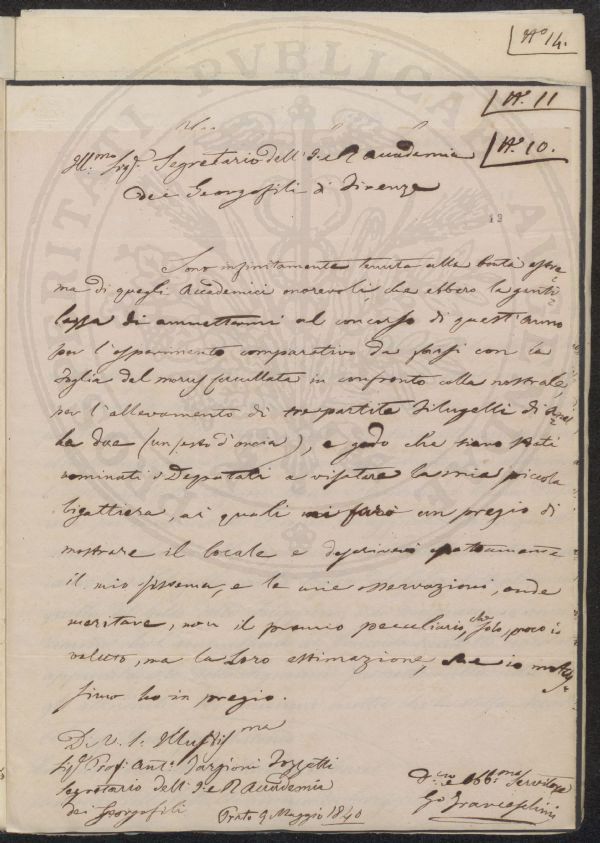 N.º 14.
N.º 11
N.º 10.
Ill.mo Sig.r Segretario dell'I. e R. Accademia
dei Georgofili di Firenze
12
Sono infinitamente tenuta alla bontà estre=
ma di quegli Accademici onorevoli che ebbero la genti=
lezza di ammettermi al concorso di quest'anno
per l'esperimento comparativo da farsi con la
foglia del morus cucullata in confronto colla nostrale,
per l'allevamento di tre partite Filugelli di
da due (un sesto d'oncia), e godo che sieno stati
nominati i Deputati a visitare la mia piccola
bigattiera, ai quali mi farò un pregio di
mostrare il locale e descrivere esattamente
il mio sistema, e le mie osservazioni, onde
meritare, non il premio peculiario, che solo, poco io
valuto, ma la Loro estimazione, che io moltis=
simo ho in pregio.
Di V. S. Illustriss.ma
Sig.r Prof. Ant. Targioni Tozzetti
Segretario dell'I. e R. Accademia
dei Georgofili
Prato 9 Maggio 1840
D. e Obb.mo Servitore